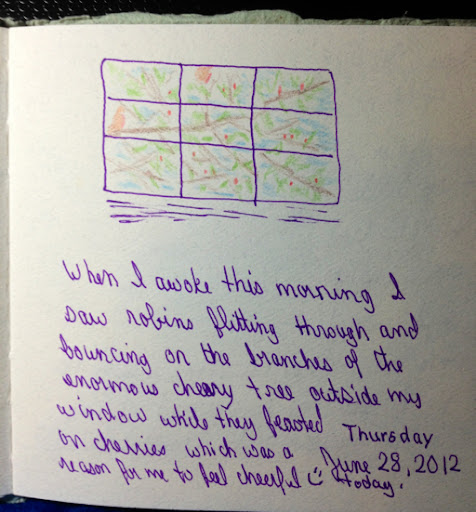 When I awoke this morning I
saw robins flitting through and
bouncing on the branches of the
enormous cherry tree outside my
window while they feasted
on cherries which was a
reason for me to feel cheerful ☺ today.
Thursday
June 28, 2012